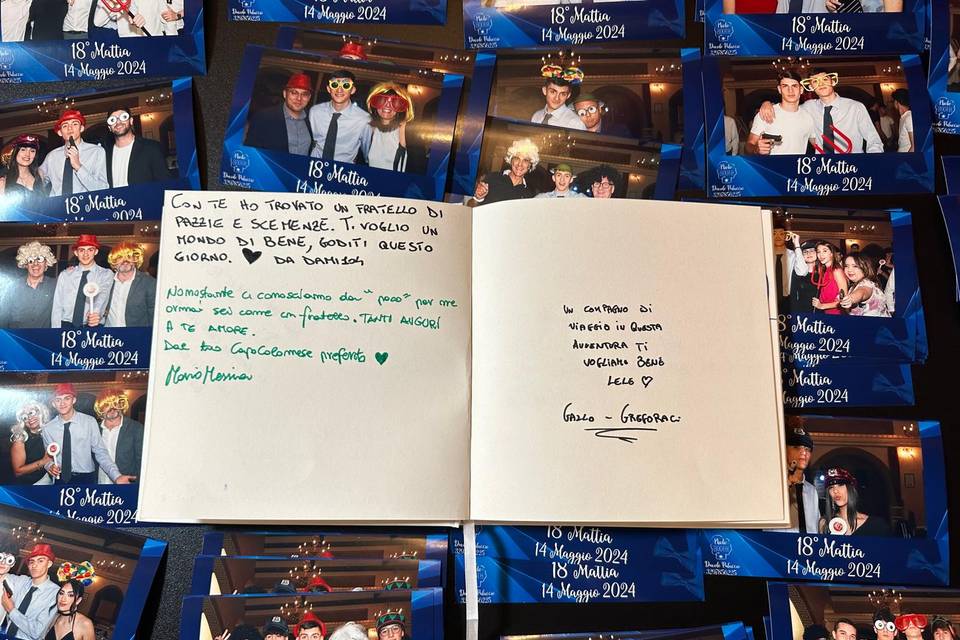 18° Mattia
14 Maggio 2024
18° Mattia
14 Maggio 2024
18° Mattia
14 Maggio 2024
18° Mattia
14 Maggio 2024
18° Mattia
14 Maggio 2024
18° Mattia
14 Maggio 2024
18° Mattia
18° Mattia
14 Maggio 2024
CON TE HO TROVATO UN FRATELLO DI
PAZZIE E SCEMENZE. TI VOGLIO UN
MONDO DI BENE, GODITI QUESTO
GIORNO. ♥ DA DAMI104
Nonostante ci conosciamo da "poco" per me
ormai sei come un fratello. TANTI AUGURI
A TE AMORE.
Dal tuo CapoColonnese preferito ♥
Mario Messina
UN COMPAGNO DI
VIAGGIO IN QUESTA
AVVENTURA TI
VOGLIAMO BENE
LELE ♡
GALLO - GREFORACI
18° Mattia
14 Maggio 2024
18° Mattia
14 Maggio 2024
18° Mattia
14 Maggio 2024
Mattia
Maggio 2024
14 Maggio 2024
18° Mattia
14 Maggio 2024
18° Mattia
14 Maggio 2024